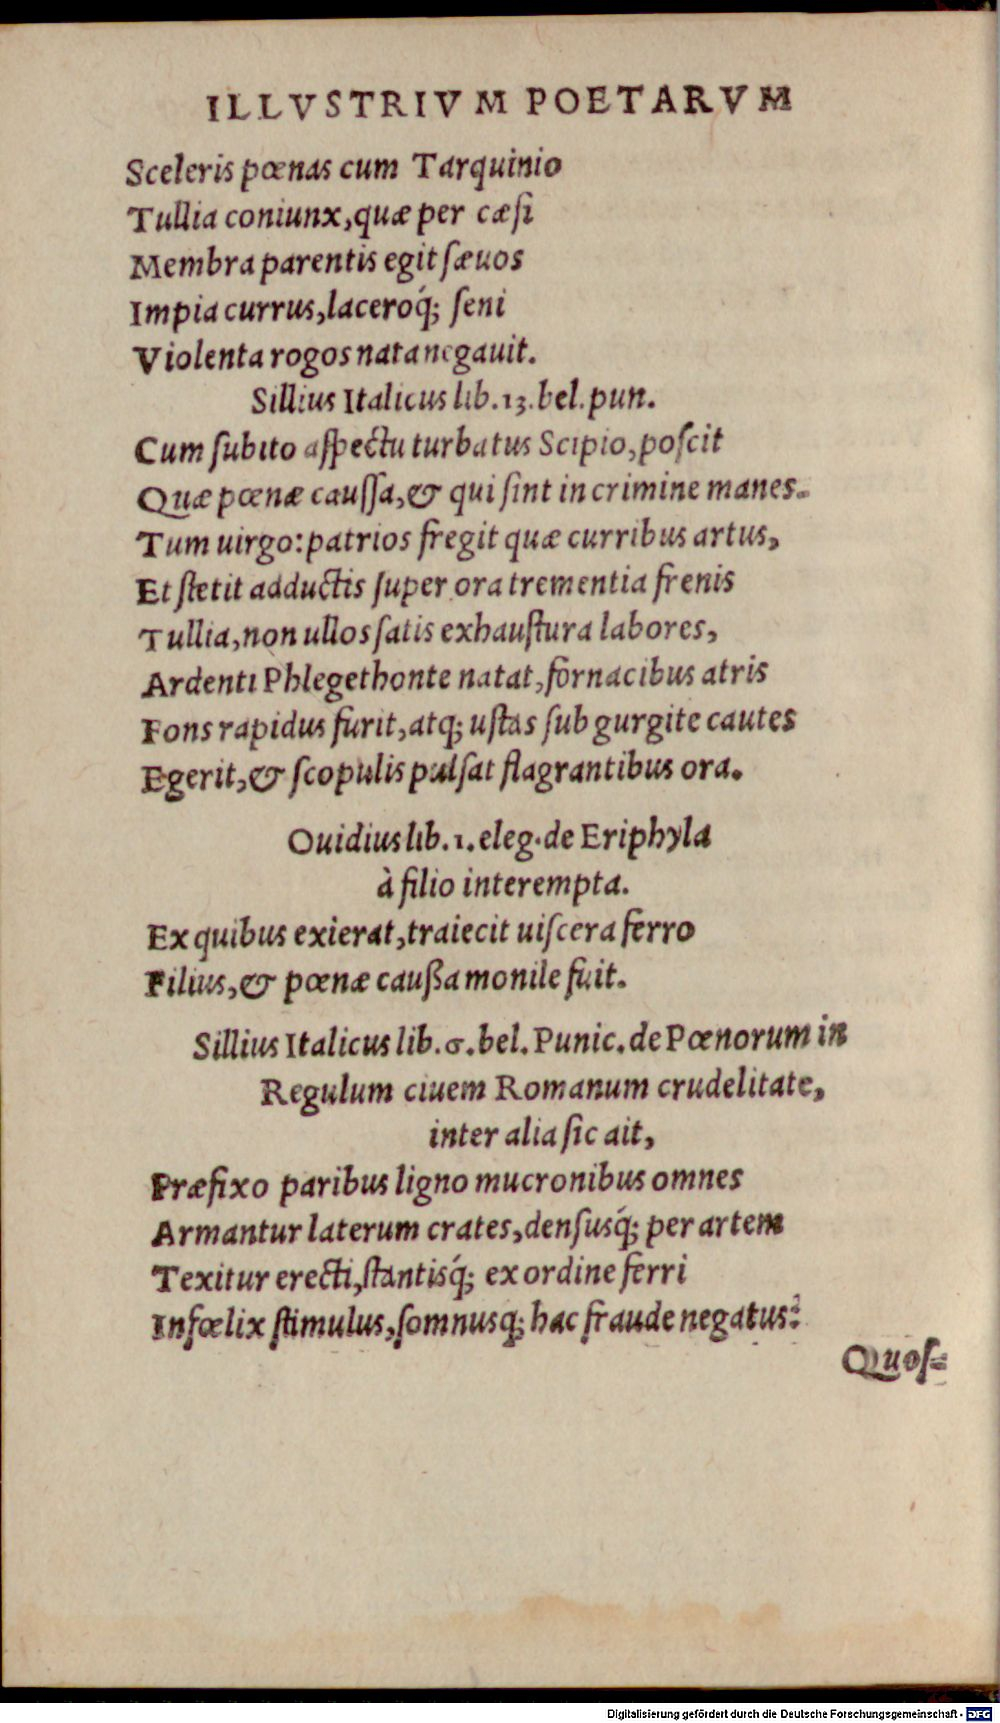 ILLVSTRIVM POETARVM
Sceleris pœnas cum Tarquinio
Tullia coniunx, quæ per cæsi
Membra parentis egit sæuos
Impia currus, laceroq́; seni
Violenta rogos nata negauit.
Sillius Italicus lib. 13. bel. pun.
Cum subito aspectu turbatus Scipio, poscit
Quæ pœnæ caussa, & qui sint in crimine manes.
Tum uirgo: patrios fregit quæ curribus artus,
Et stetit adductis super ora trementia frenis
Tullia, non ullos satis exhaustura labores,
Ardenti Phlegethonte natat, fornacibus atris
Fons rapidus furit, atq; ustas sub gurgite cautes
Egerit, & scopulis pulsat flagrantibus ora.
Ouidius lib. 1. eleg. de Eriphyla
à filio interempta.
Ex quibus exierat, traiecit uiscera ferro
Filius, & pœnæ caußa monile fuit.
Sillius Italicus lib. 6. bel. Punic. de Pœnorum in
Regulum ciuem Romanum crudelitate,
inter alia sic ait,
Præfixo paribus ligno mucronibus omnes
Armantur laterum crates, densusq́; per artem
Texitur erecti, stantisq́; ex ordine ferri
Infœlix stimulus, somnusq; hac fraude negatus:
Quos-
Digitalisierung gefördert durch die Deutsche Forschungsgemeinschaft - DFG